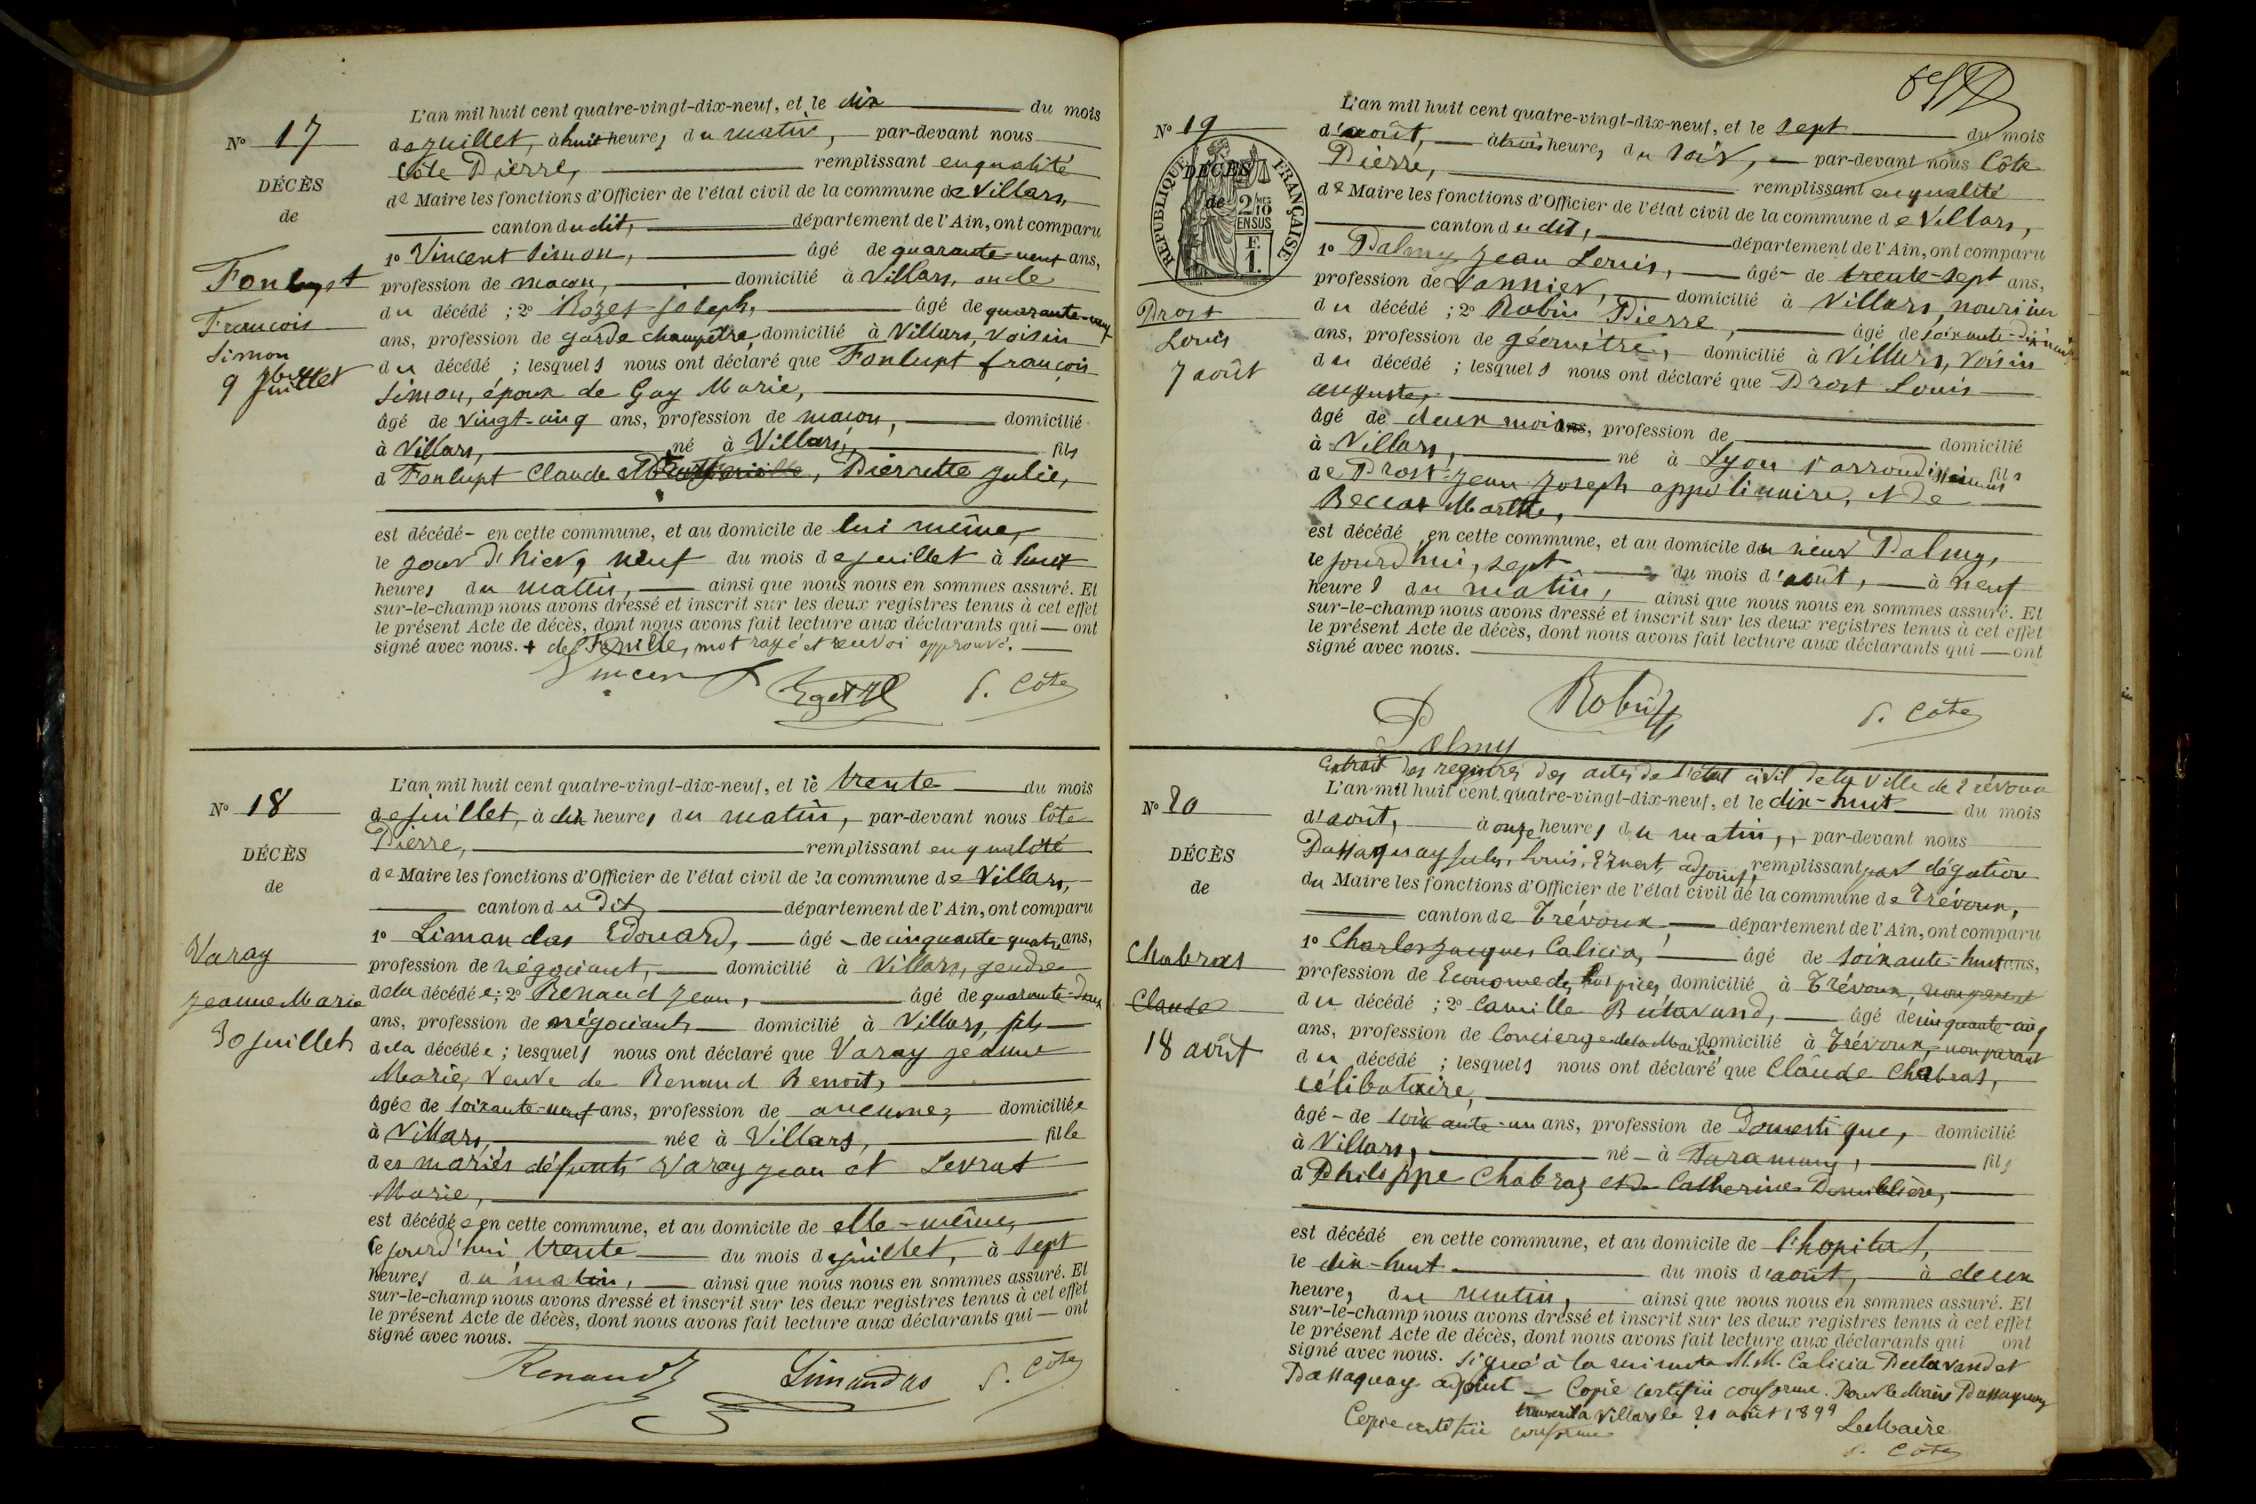 No 17
DÉCÈS
de
Fonlupt
François
Simon
9 Juillet
L'an mil huit cent quatre-vingt-dix-neuf, et le dix du mois
de juillet, à huit heures du matin, par-devant nous
Côte Pierre, remplissant en qualité
de Maire les fonctions d'Officier de l'état civil de la commune de Villars,
canton dudit, département de l'Ain, ont comparu
1o Vincent Simon, âgé de quarante-neuf ans,
profession de maçon, domicilié à Villars, oncle
du décédé ; 2o Rozet Joseph, âgé de quarante-neuf
ans, profession de garde champêtre, domicilié à Villars, voisin
du décédé ; lesquels nous ont déclaré que Fonlupt françois
Simon, époux de Gay Marie,
âgé de vingt-cinq ans, profession de maçon, domicilié
à Villars, né à Villars, fils
d Fonlupt Claude et Pierrette Julie,
est décédé en cette commune, et au domicile de lui même,
le jour d'hier, neuf du mois de juillet à huit
heures du matin, ainsi que nous nous en sommes assuré. Et
sur-le-champ nous avons dressé et inscrit sur les deux registres tenus à cet effet
le présent Acte de décès, dont nous avons fait lecture aux déclarants qui ont
signé avec nous. + de mot rayé et renvoi approuvé.
Vincent P. Côte
No 18
DÉCÈS
de
Varay
Jeanne Marie
30 juillet
L'an mil huit cent quatre-vingt-dix-neuf, et le trente du mois
de juillet, à dix heures du matin, par-devant nous Côte
Pierre, remplissant en qualité
de Maire les fonctions d'Officier de l'état civil de la commune de Villars,
canton du Dit, département de l'Ain, ont comparu
1o Limandas Edouard, âgé de cinquante-quatre ans,
profession de négociant, domicilié à Villars, gendre
de la décédée ; 2o Renaud Jean, âgé de quarante-deux
ans, profession de négociant, domicilié à Villars, fils
de la décédée ; lesquels nous ont déclaré que Varay Jeanne
Marie, veuve de Renaud Benoit,
âgée de soixante-neuf ans, profession de aucune, domiciliée
à Villars, née à Villars, fille
des mariés défunts Varay Jean et Levrat
Marie,
est décédée en cette commune, et au domicile de elle-même,
le jourd'hui trente du mois de juillet, à sept
heures du matin, ainsi que nous nous en sommes assuré. Et
sur-le-champ nous avons dressé et inscrit sur les deux registres tenus à cet effet
le présent Acte de décès, dont nous avons fait lecture aux déclarants qui ont
signé avec nous.
Renaud Limandas P. Côte
No 19
DÉCÈS
de
RÉPUBLIQUE FRANÇAISE
2/10
EN SUS
F.
1.
Prost
Louis
7 août
L'an mil huit cent quatre-vingt-dix-neuf, et le sept du mois
d'août, à trois heures du soir, par-devant nous Côte
Pierre, remplissant en qualité
de Maire les fonctions d'Officier de l'état civil de la commune de Villars,
canton dudit, département de l'Ain, ont comparu
1o Palmy Jean Louis, âgé de trente-sept ans,
profession de Vannier, domicilié à Villars, nourricier
du décédé ; 2o Robin Pierre, âgé de soixante-dix neuf
ans, profession de géomètre, domicilié à Villars, voisin
du décédé ; lesquels nous ont déclaré que Prost Louis
auguste,
âgé de deux mois, profession de domicilié
à Villars, né à Lyon arrondissement fils
de Prost Jean Joseph appolinaire, et de
Marthe,
est décédé en cette commune, et au domicile du sieur Palmy,
le jourd'hui, sept du mois d'août, à neuf
heures du matin, ainsi que nous nous en sommes assuré. Et
sur-le-champ nous avons dressé et inscrit sur les deux registres tenus à cet effet
le présent Acte de décès, dont nous avons fait lecture aux déclarants qui ont
signé avec nous.
Palmy Robin P. Côte
Extrait des registres des actes de l'état civil de la ville de Trévoux
No 20
DÉCÈS
de
Chabras
Claude
18 août
L'an mil huit cent quatre-vingt-dix-neuf, et le dix-huit du mois
d'août, à onze heures du matin, par-devant nous
Passaquay Jules, Louis, Ernest, adjoint, remplissant par dégation
du Maire les fonctions d'Officier de l'état civil de la commune de Trévoux,
canton de Trévoux, département de l'Ain, ont comparu
1o Charles Jacques Calicia, âgé de soixante-huit ans,
profession de Econome des hospices domicilié à Trévoux, non parent
du décédé ; 2o Camille Butavand, âgé de cinquante-cinq
ans, profession de Concierge de la Mairie domicilié à Trévoux, non parent
du décédé ; lesquels nous ont déclaré que Claude Chabras,
célibataire,
âgé de soixante-un ans, profession de Domestique, domicilié
à Villars, né à Faramans, fils
d Philippe Chabraz et de Catherine
est décédé en cette commune, et au domicile de l'hopital,
le dix-huit du mois d'août, à deux
heures du matin, ainsi que nous nous en sommes assuré. Et
sur-le-champ nous avons dressé et inscrit sur les deux registres tenus à cet effet
le présent Acte de décès, dont nous avons fait lecture aux déclarants qui ont
signé avec nous. Signé à la minute M.M. Calicia Butavand et
Passaquay adjoint Copie certifiée conforme. Pour le Maire Passaquay
transcrit à Villars le 21 août 1899
Copie certifiée conforme Le Maire
P. Côte